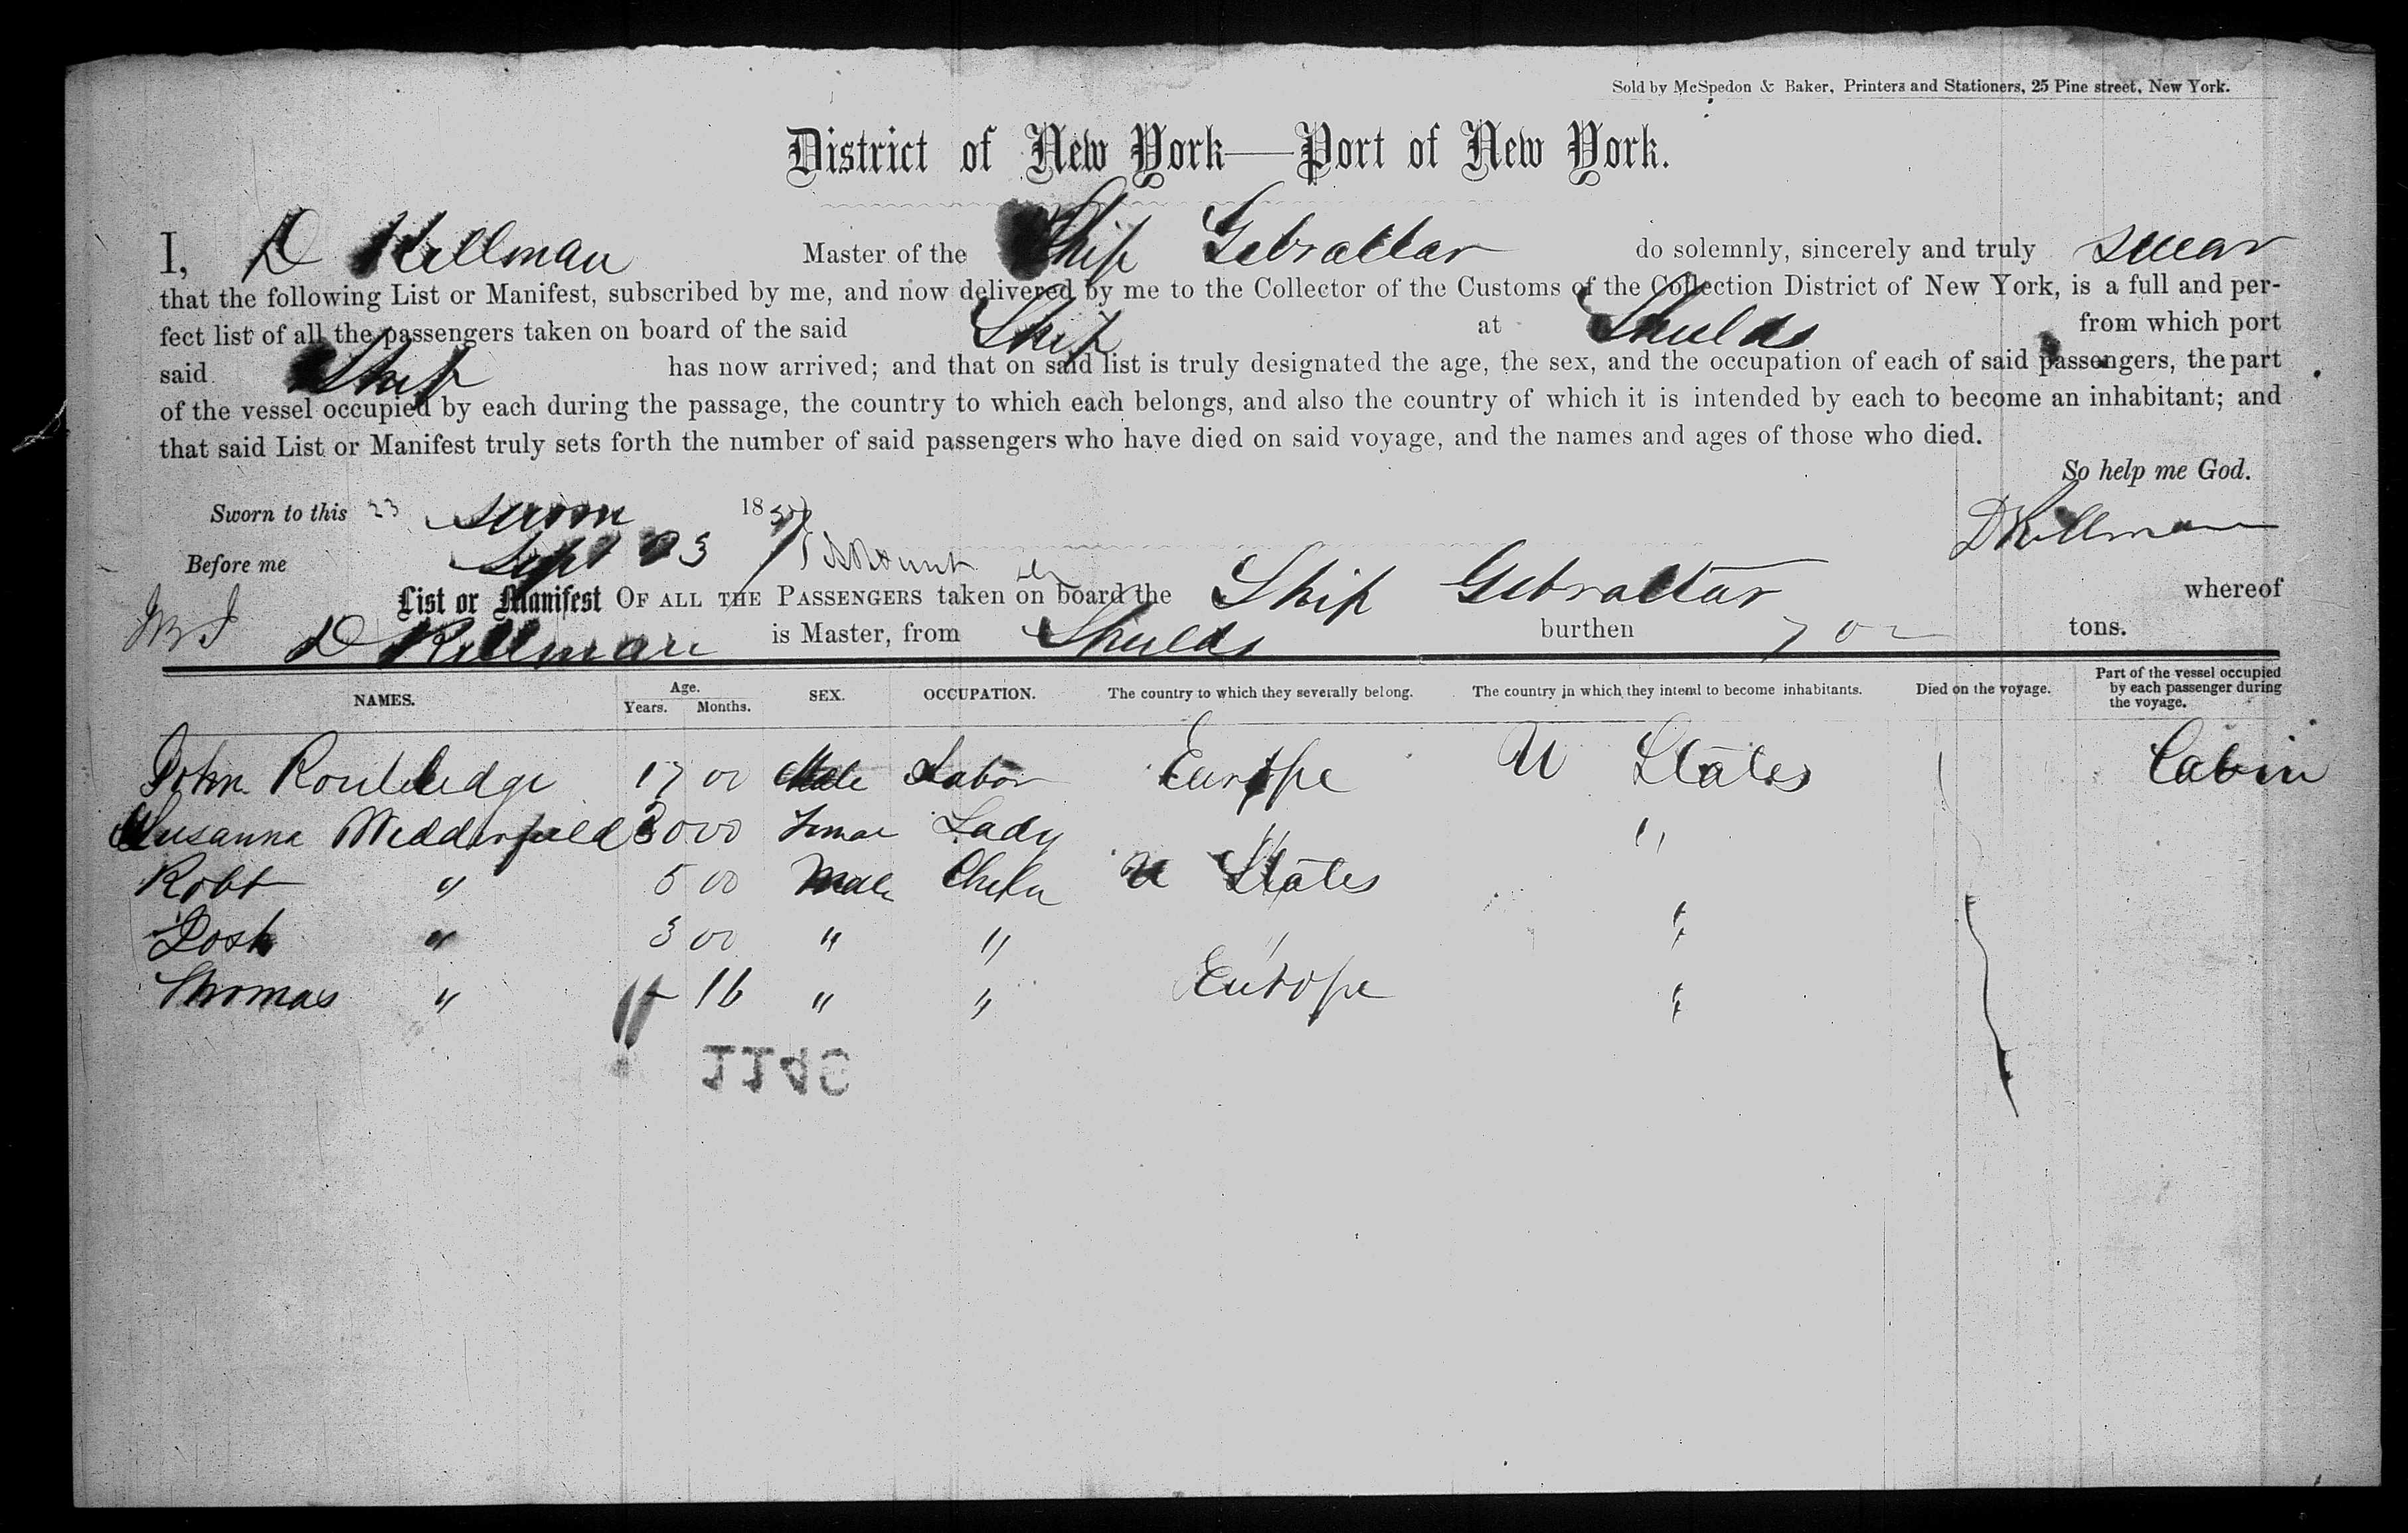 Sold by McSpedon & Baker, Printers and Stationers, 25 Pine street, New York.
District of New York—Port of New York.
I, D Killman Master of the Ship Gebraltar do solemnly, sincerely and truly swear
that the following List or Manifest, subscribed by me, and now delivered by me to the Collector of the Customs of the Collection District of New York, is a full and per-
fect list of all the passengers taken on board of the said Ship at Shulds from which port
said Ship has now arrived; and that on said list is truly designated the age, the sex, and the occupation of each of said passengers, the part
of the vessel occupied by each during the passage, the country to which each belongs, and also the country of which it is intended by each to become an inhabitant; and
that said List or Manifest truly sets forth the number of said passengers who have died on said voyage, and the names and ages of those who died.
So help me God.
Sworn to this 23 18 D Killman
Before me Sept 23
List or Manifest OF ALL THE PASSENGERS taken on board the Ship Gebraltar whereof
D Killman is Master, from Shulds burthen 702 tons.
NAMES. Age. Years. Months. SEX. OCCUPATION. The country to which they severally belong. The country in which they intend to become inhabitants. Died on the voyage. Part of the vessel occupied by each passenger during the voyage.
John Routledge 17 00 Male Labor Europe U States Cabin
Susanna Wedderfield 30 00 Femae Lady " "
Robt " 5 00 Male U States
Josh " 3 00 " " " "
Thomas " 16 " " Europe "